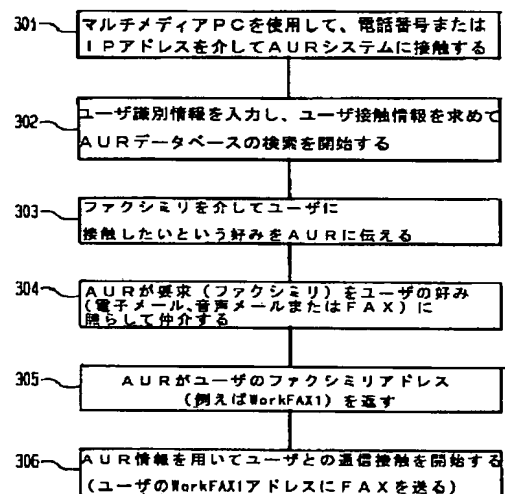 301
マルチメディアPCを使用して、電話番号または
IPアドレスを介してAURシステムに接触する
302
ユーザ識別情報を入力し、ユーザ接触情報を求めて
AURデータベースの検索を開始する
303
ファクシミリを介してユーザに
接触したいという好みをAURに伝える
304
AURが要求(ファクシミリ)をユーザの好み
(電子メール、音声メールまたはFAX)に
照らして仲介する
305
AURがユーザのファクシミリアドレス
(例えばWorkFAX1)を返す
306
AUR情報を用いてユーザとの通信接触を開始する
(ユーザのWorkFAX1アドレスにFAXを送る)